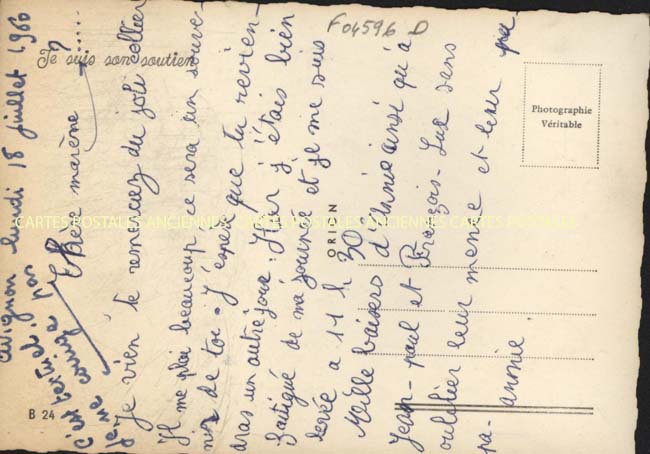 Avignon lundi 18 juillet 1960
Je suis son soutien
?.....
c'est terminé pas
je me corrige
Chère marène
Je vien te remerciez du joli collier
Il me plai beaucoup ce sera un souve-
nir de toi. J'éspère que tu revien-
dras un autre jour. Hier j'étais bien
fatigué de ma journée et je me suis
levée a 11 h 30.
Mille baisers d'annie ainsi qu'à
Jean-paul et François-Luc sans
oublier leur meme et leur pa
pa. annie
F04596 D
Photographie
Véritable
ORION
B 24
CARTES POSTALES ANCIENNES CARTES POSTALES ANCIENNES CARTES POSTALES